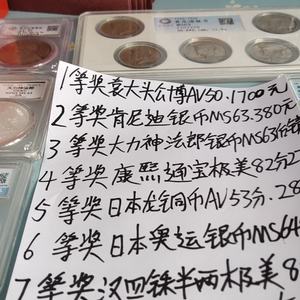 1等奖袁大头公博AV50.1700元
2等奖肯尼迪银币MS63.380
3等奖大力神法郎银币MS63
4等奖康熙通宝极美82分2
5等奖日本龙铜币AV53分.28
6等奖日本奥运银币MS64
7等奖汉四铢半两极美8